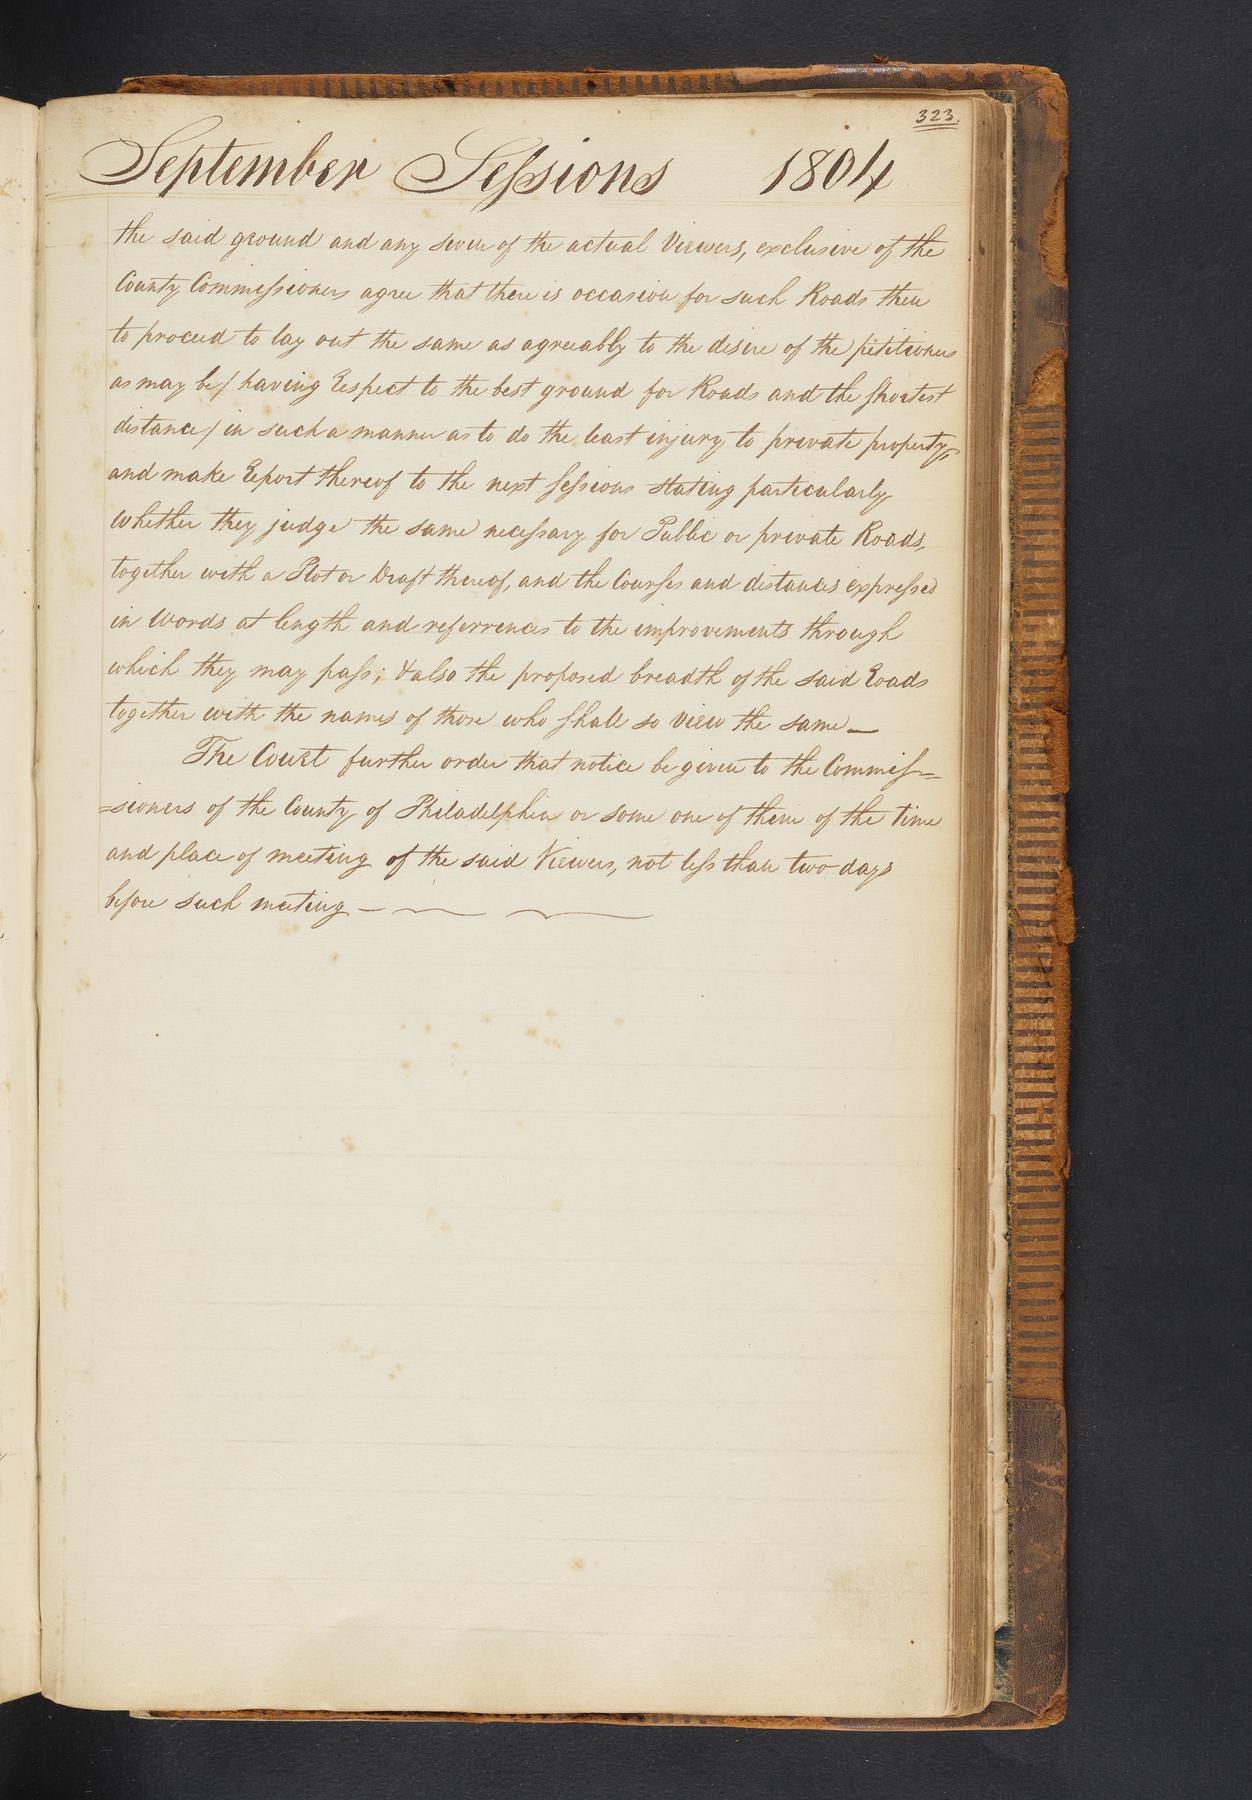 323.
September Sessions 1804
the said ground and any seven of the actual Viewers, exclusive of the
County Commissioners agree that there is occasion for such Roads then
to proceed to lay out the same as agreeably to the desire of the petitioners
as may be/ having Respect to the best ground for Roads and the shortest
distance/ in such a manner as to do the least injury to private property,
and make Report thereof to the next Sessions stating particularly
whether they judge the same necessary for Public or private Roads,
together with a Plot or Draft thereof, and the Courses and distances expressed
in Words at length and referrences to the improvements through
which they may pass; & also the proposed breadth of the said Roads
together with the names of those who shall so view the same —
The Court further order that notice be given to the Commis=
=sioners of the County of Philadelphia or some one of them of the time
and place of meeting of the said Viewers, not less than two days
before such meeting —